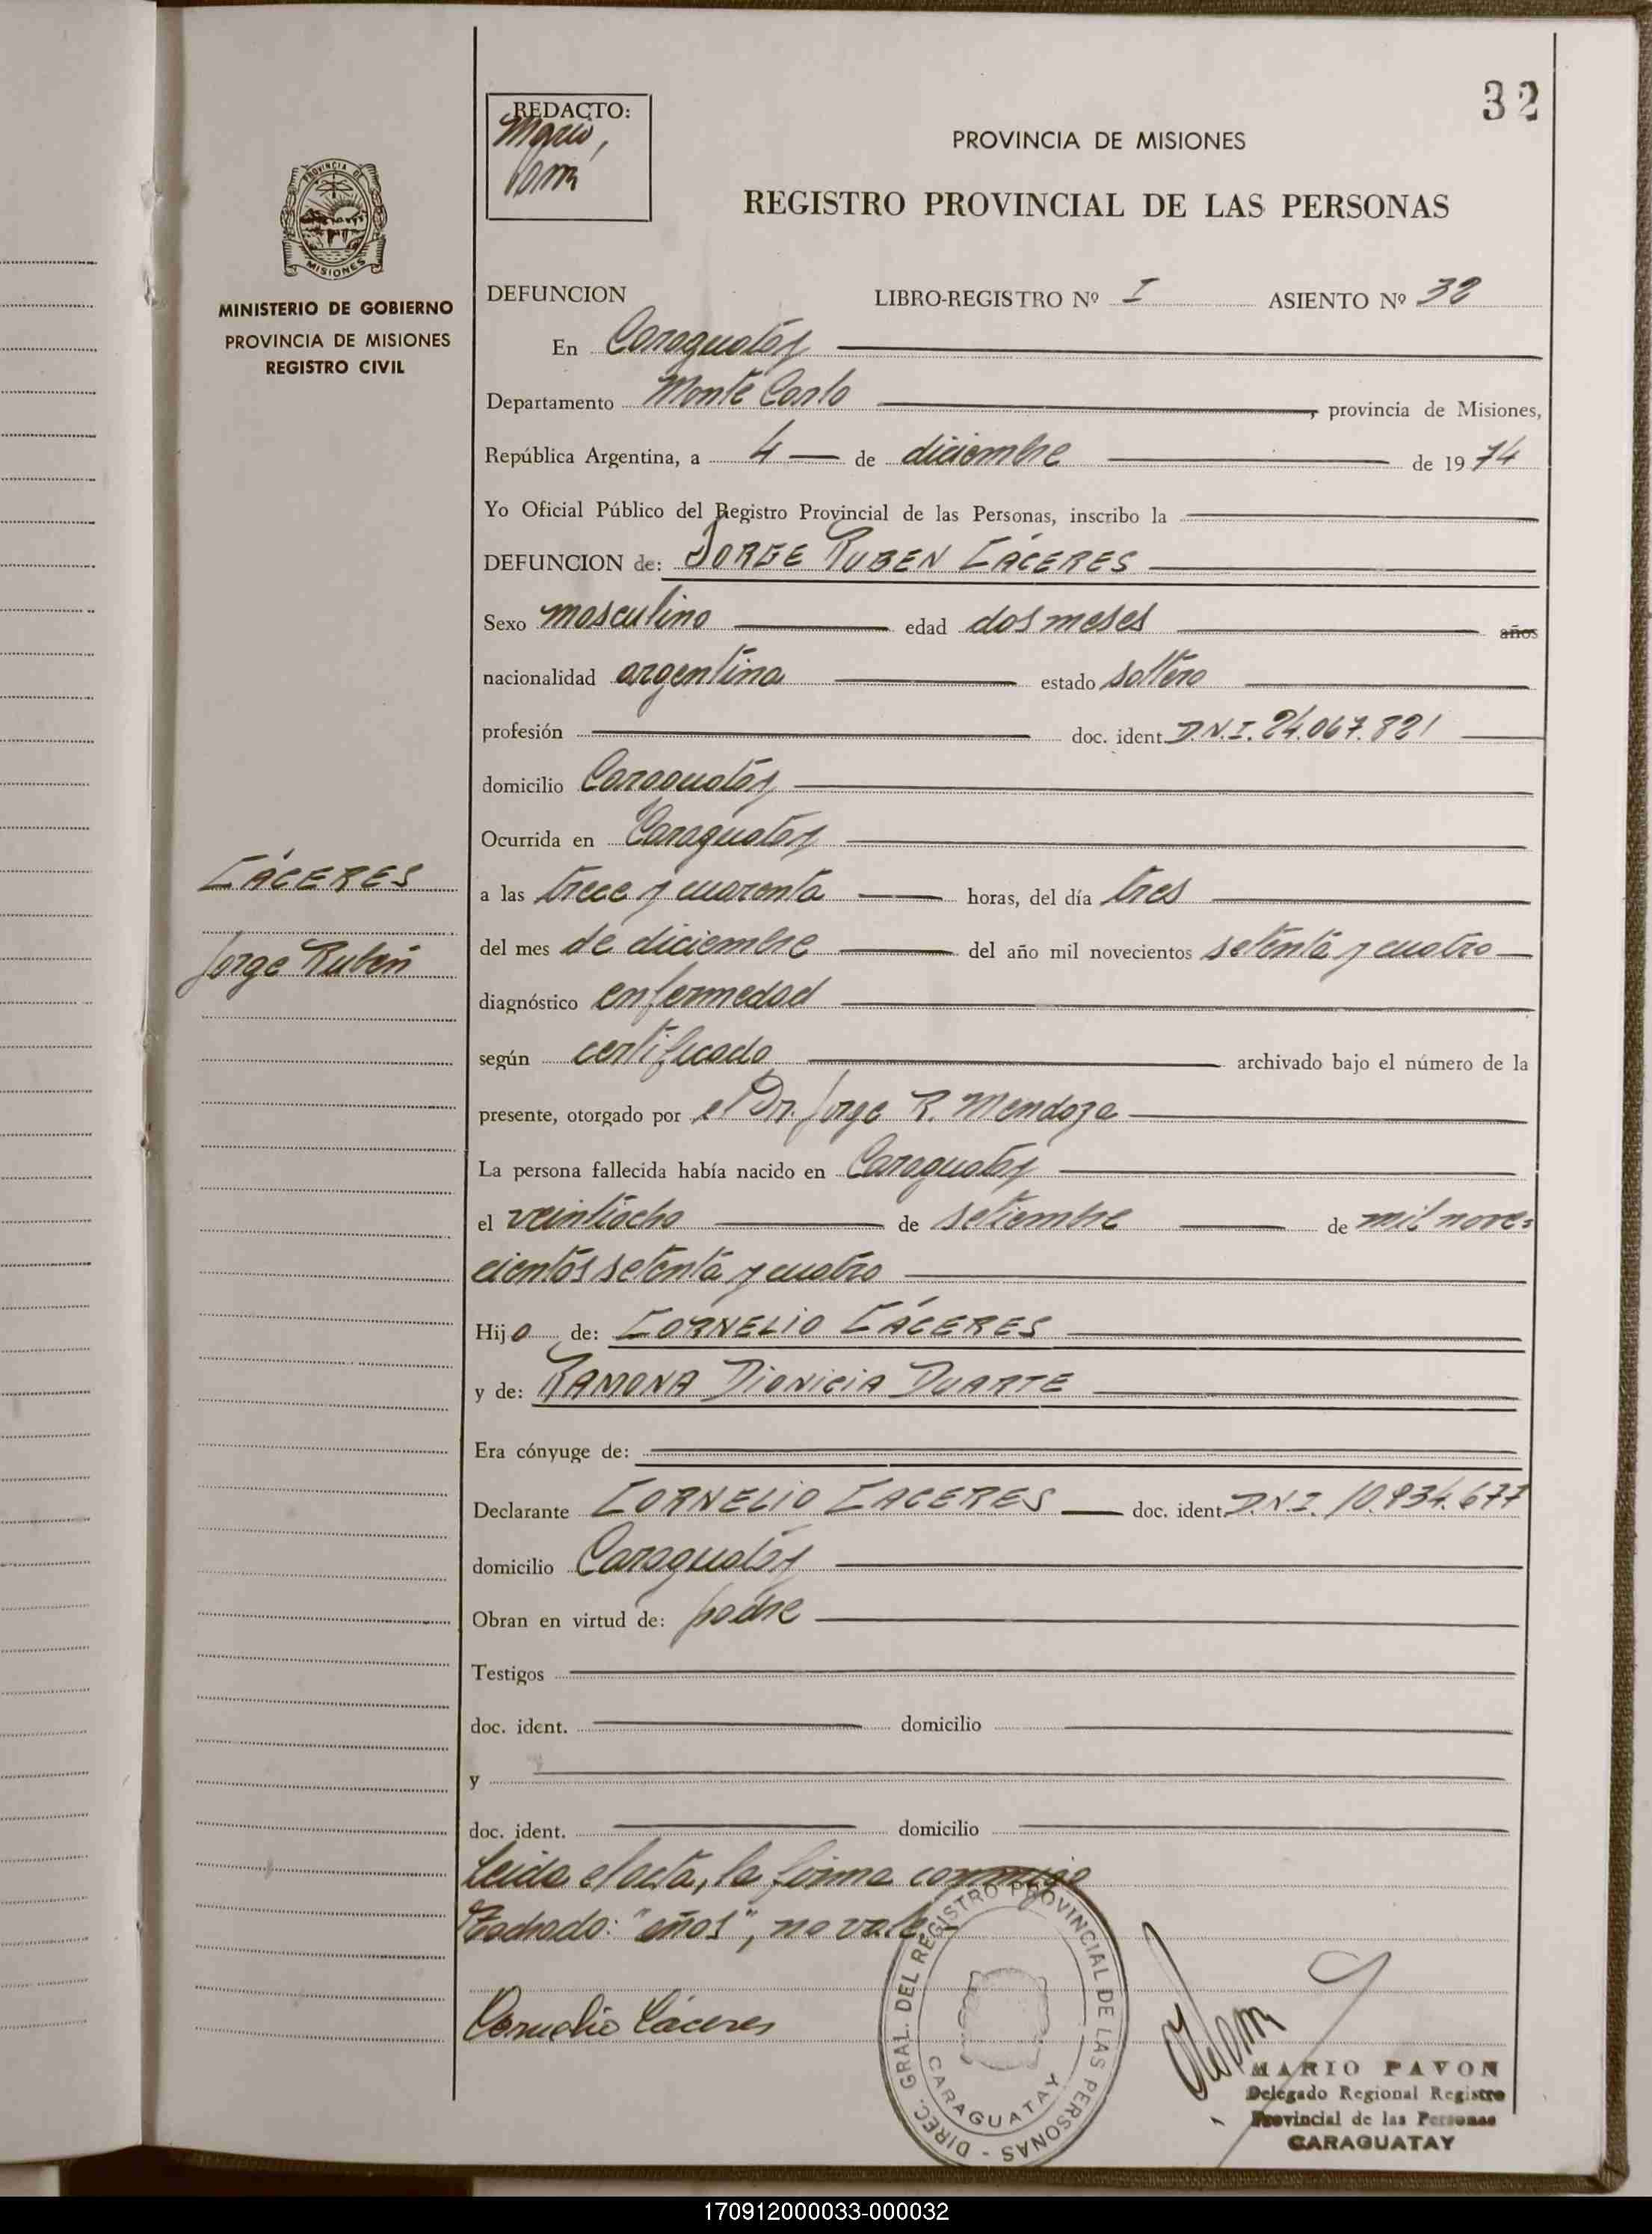 32
REDACTO:
PROVINCIA DE MISIONES
REGISTRO PROVINCIAL DE LAS PERSONAS
PROVINCIA DE
MISIONES
MINISTERIO DE GOBIERNO
PROVINCIA DE MISIONES
REGISTRO CIVIL
CÁCERES
Jorge Rubén
DEFUNCION LIBRO-REGISTRO Nº I ASIENTO Nº 32
En Caraguatáy
Departamento Monte Carlo, provincia de Misiones,
República Argentina, a 4 de diciembre de 1974
Yo Oficial Público del Registro Provincial de las Personas, inscribo la
DEFUNCION de: JORGE RUBEN CÁCERES
Sexo masculino edad dos meses años
nacionalidad argentina estado soltero
profesión doc. ident. D.N.I. 24.067.821
domicilio Caraguatáy
Ocurrida en Caraguatáy
a las trece y cuarenta horas, del día tres
del mes de diciembre del año mil novecientos setenta y cuatro
diagnóstico enfermedad
según certificado archivado bajo el número de la
presente, otorgado por el Dr. Jorge R. Mendoza
La persona fallecida había nacido en Caraguatáy
el veintiocho de setiembre de mil nove=
cientos setenta y cuatro
Hijo de: CORNELIO CÁCERES
y de: RAMONA DIONICIA DUARTE
Era cónyuge de:
Declarante CORNELIO CACERES doc. ident. D.N.I. 10.934.677
domicilio Caraguatáy
Obran en virtud de: padre
Testigos
doc. ident. domicilio
y
doc. ident. domicilio
Leida el acta, la firma conmigo
Tachado: "años", no vale.-
Cornelio Cáceres
DIREC. GRAL. DEL REGISTRO PROVINCIAL DE LAS PERSONAS -
CARAGUATAY
MARIO PAVON
Delegado Regional Registro
Provincial de las Personas
CARAGUATAY
170912000033-000032